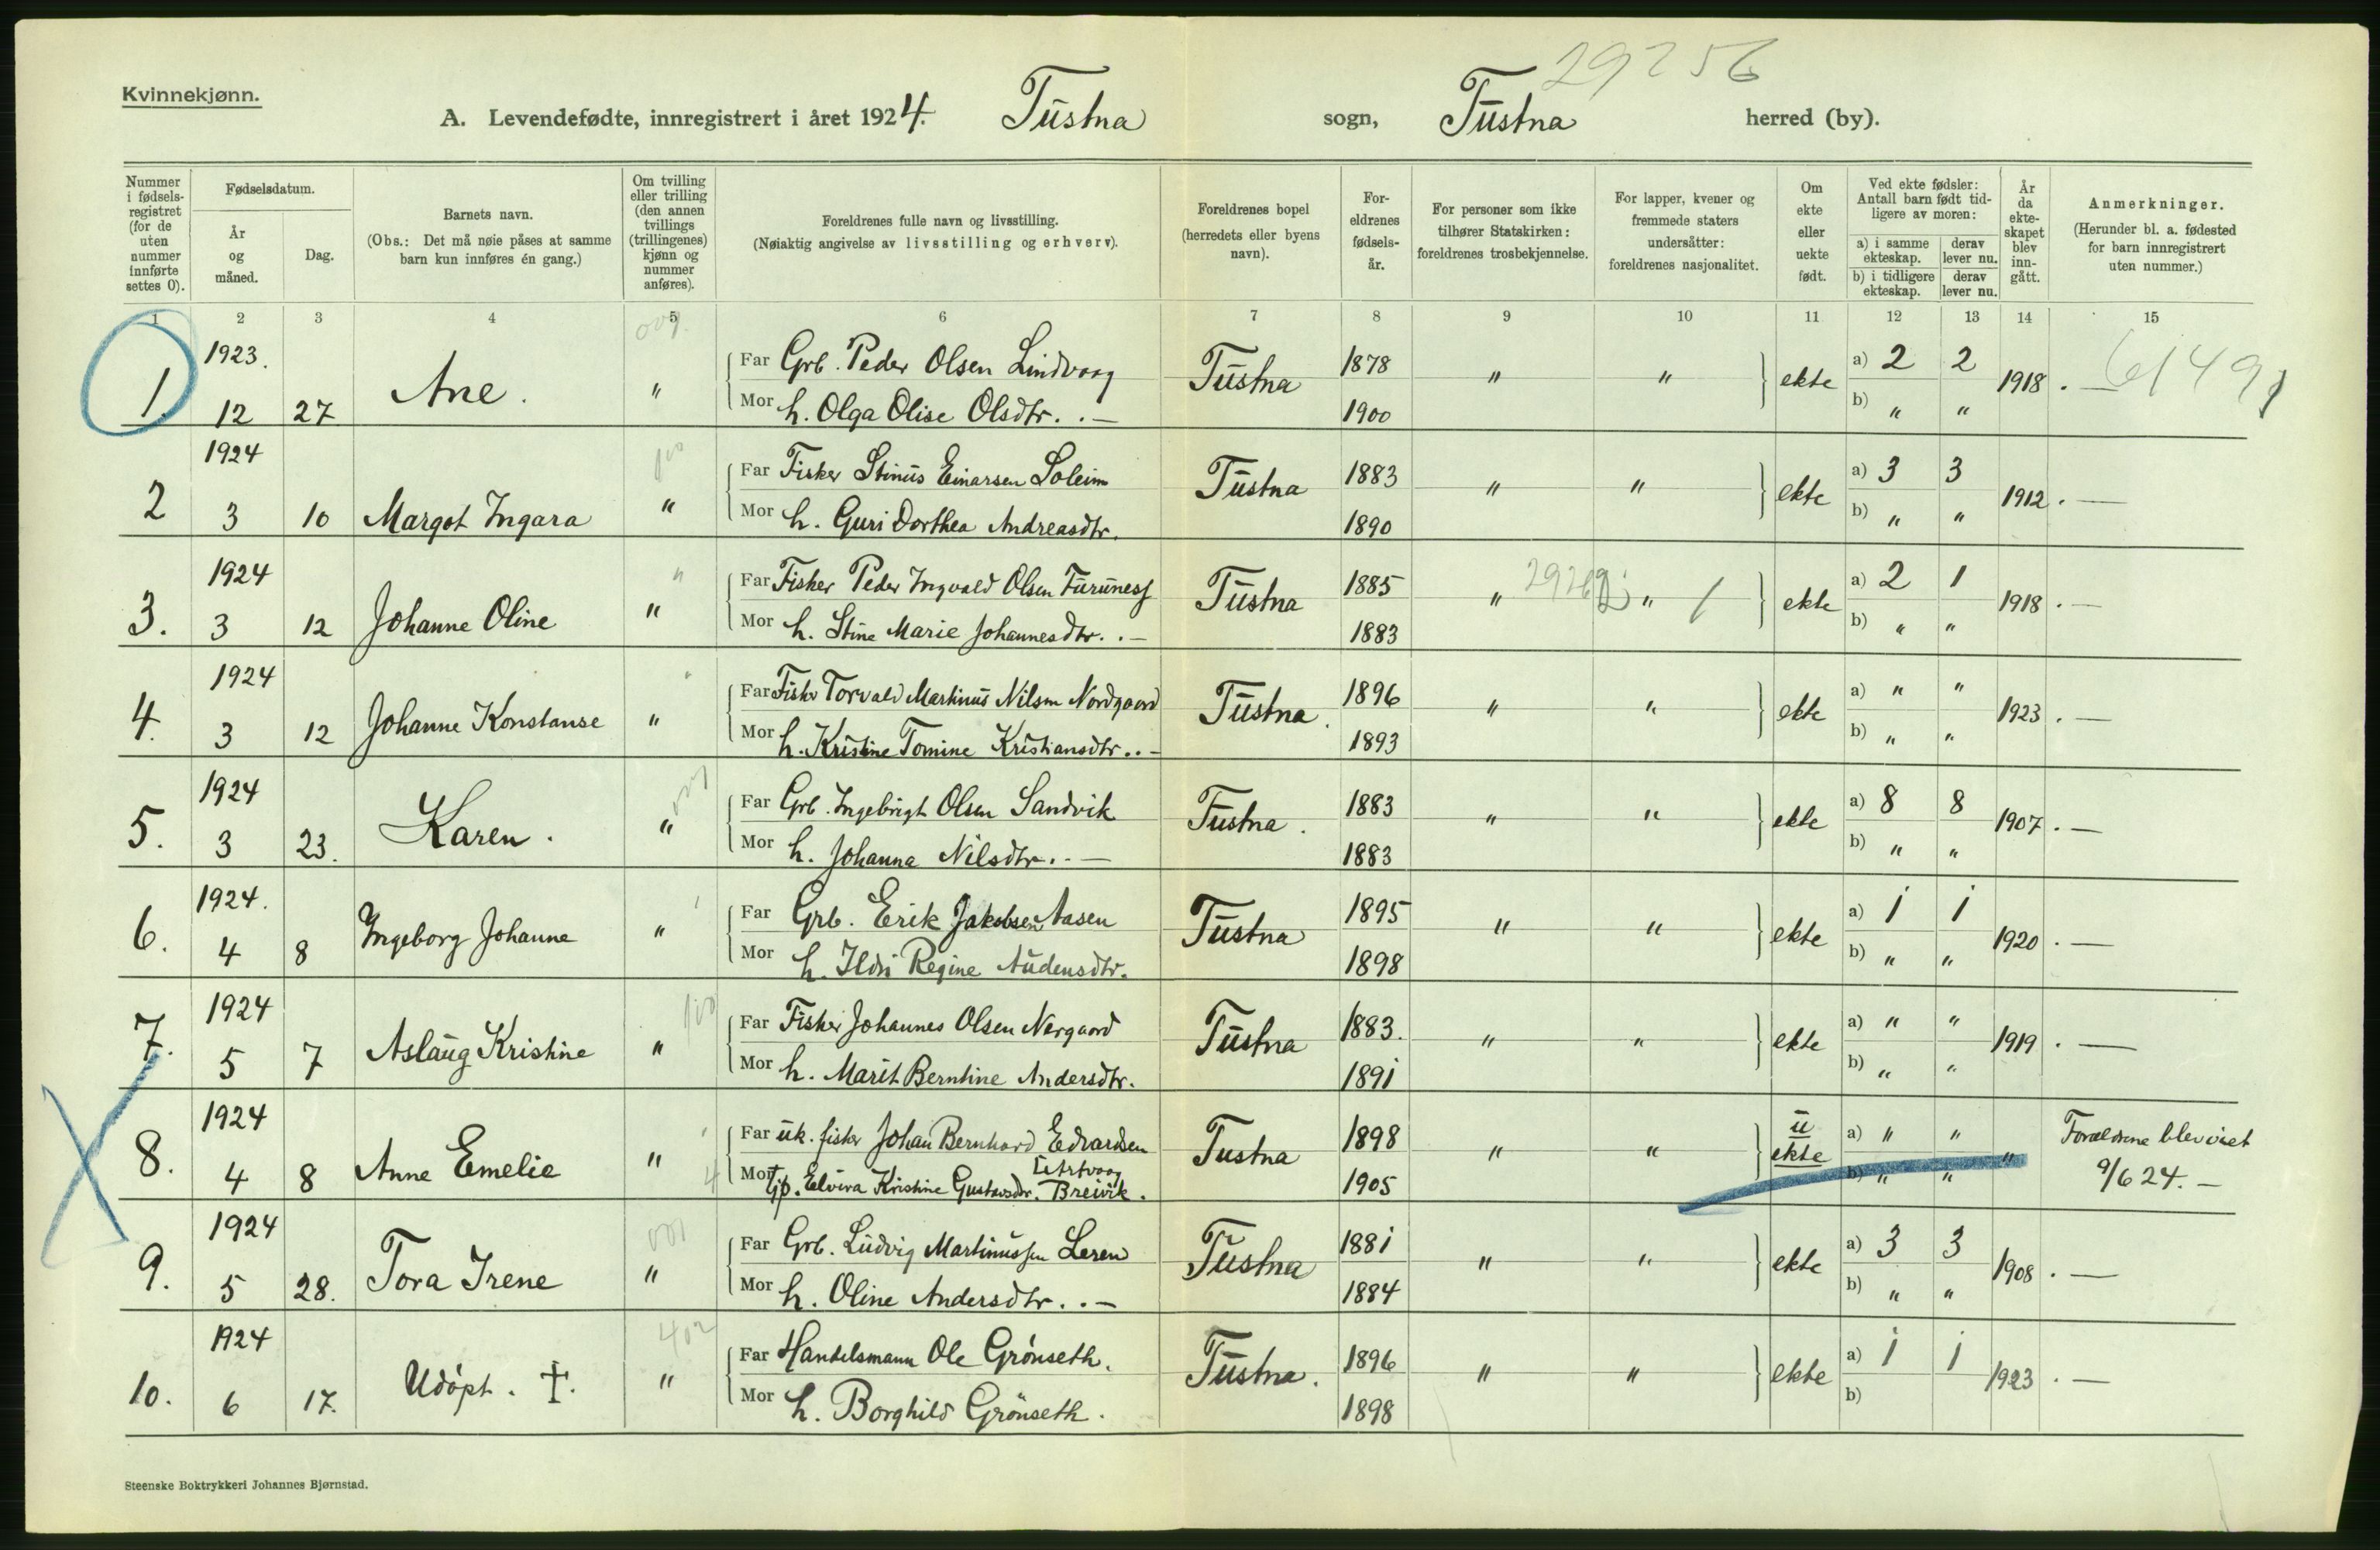 29256
Kvinnekjønn.
A. Levendefødte, innregistrert i året 1924. Tustna sogn, Tustna herred (by).
Nummer i fødsels-registret (for de uten nummer innførte settes 0).
Fødselsdatum.
År og måned.
Dag.
Barnets navn.
(Obs.: Det må nøie påses at samme barn kun innføres én gang.)
Om tvilling eller trilling (den annen tvillings (trillingenes) kjønn og nummer anføres).
Foreldrenes fulle navn og livsstilling.
(Nøiaktig angivelse av livsstilling og erhverv).
Foreldrenes bopel (herredets eller byens navn).
For-eldrenes fødsels-år.
For personer som ikke tilhører Statskirken: foreldrenes trosbekjennelse.
For lapper, kvener og fremmede staters undersåtter: foreldrenes nasjonalitet.
Om ekte eller uekte født.
Ved ekte fødsler: Antall barn født tid-ligere av moren:
a) i samme ekteskap.
derav lever nu.
b) i tidligere ekteskap.
derav lever nu.
År da ekte-skapet blev inn-gått.
Anmerkninger.
(Herunder bl. a. fødested for barn innregistrert uten nummer.)
1 2 3 4 5 6 7 8 9 10 11 12 13 14 15
1923. Far Grb. Peder Olsen Lindvaag 1878 a) 2 2
1. 12 27 Ane. " Tustna " " ekte 1918. —
Mor h. Olga Olise Olsdtr. . — 1900 b) " "
1924 Far Fisker Stinus Einarsen Soleim 1883 a) 3 3
2 3 10 Margot Ingara " Tustna " " ekte 1912. —
Mor h. Guri Dorthea Andreasdtr. 1890 b) " "
1924 Far Fisker Peder Ingvald Olsen Furuness 1885 a) 2 1
3. 3 12 Johanne Oline " Tustna " " ekte 1918. —
Mor h. Stine Marie Johannesdtr. . — 1883 b) " "
1924 Far Fisker Torvald Martinus Nilsen Nordgaard 1896 a) " "
4. 3 12 Johanne Konstanse " Tustna. " " ekte 1923. —
Mor h. Kristine Tomine Kristiansdtr. . — 1893 b) " "
1924 Far Grb. Ingebrigt Olsen Sandvik 1883 a) 8 8
5. 3 23. Karen. " Tustna. " " ekte 1907. —
Mor h. Johanna Nilsdtr. . — 1883 b) " "
1924. Far Grb. Erik Jakobsen Aasen 1895 a) 1 1
6. 4 8 Ingeborg Johanne " Tustna " " ekte 1920. —
Mor h. Ildri Regine Audensdtr. 1898 b) " "
1924 Far Fisker Johannes Olsen Nergaard 1883. a) " "
7. 5 7 Aslaug Kristine " Tustna " " ekte 1919. —
Mor h. Marit Berntine Andersdtr. 1891 b) " "
1924 Far uk. fisker Johan Bernhard Edvardsen 1898 u a) " " Forældrene blev viet
8. 4 8 Anne Emelie " Tustna " " ekte " 9/6 24. —
Mor Gp. Elvira Kristine Gustavsdtr. Breivik. 1905 b) " "
1924 Far Grb. Ludvig Martinussen Leren 1881 a) 3 3
9. 5 28. Tora Irene " Tustna " " ekte 1908. —
Mor h. Oline Andersdtr. . — 1884 b) " "
1924 Far Handelsmann Ole Grønseth. 1896 a) 1 1
10. 6 17. Udøpt. †. " Tustna. " " ekte 1923. —
Mor h. Borghild Grønseth. 1898 b)
Steenske Boktrykkeri Johannes Bjørnstad.